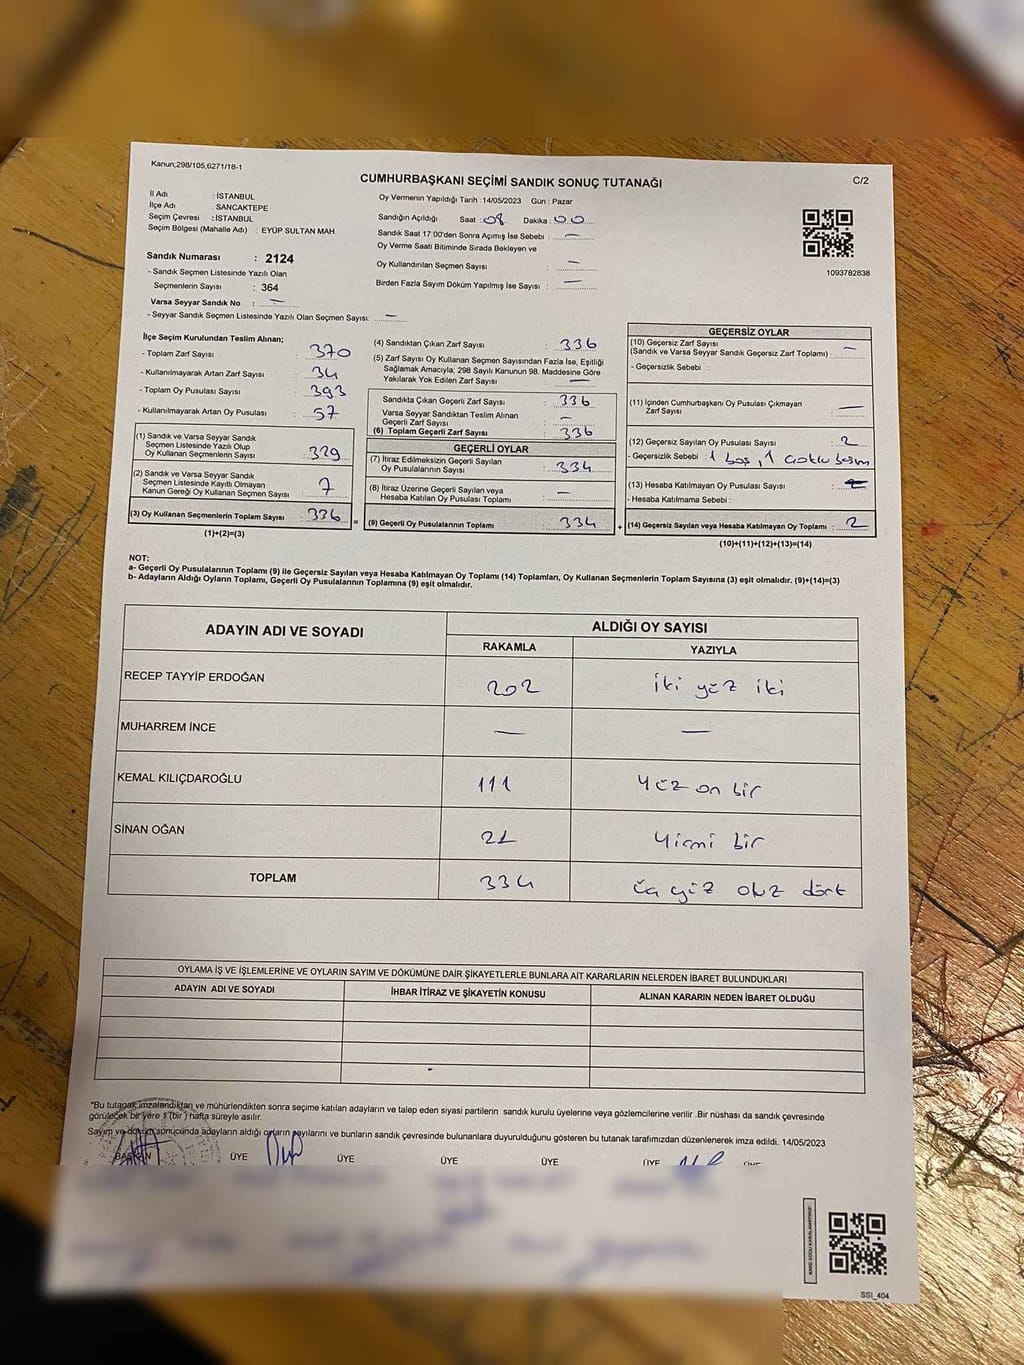 Kanun;298/105,6271/18-1
CUMHURBAŞKANI SEÇİMİ SANDIK SONUÇ TUTANAĞI
C/2
İl Adı : İSTANBUL
İlçe Adı : SANCAKTEPE
Seçim Çevresi : İSTANBUL
Seçim Bölgesi (Mahalle Adı) : EYÜP SULTAN MAH.
Oy Vermenin Yapıldığı Tarih : 14/05/2023 Gün : Pazar
Sandığın Açıldığı Saat : 08 Dakika : 00
Sandık Saat 17:00'den Sonra Açımış İse Sebebi : —
Oy Verme Saati Bitiminde Sırada Bekleyen ve
Oy Kullandırılan Seçmen Sayısı : —
Birden Fazla Sayım Döküm Yapılmış İse Sayısı : —
1093782838
Sandık Numarası : 2124
- Sandık Seçmen Listesinde Yazılı Olan
Seçmenlerin Sayısı : 364
Varsa Seyyar Sandık No : —
- Seyyar Sandık Seçmen Listesinde Yazılı Olan Seçmen Sayısı: —
İlçe Seçim Kurulundan Teslim Alınan;
- Toplam Zarf Sayısı : 370
- Kullanılmayarak Artan Zarf Sayısı : 34
- Toplam Oy Pusulası Sayısı : 393
- Kullanılmayarak Artan Oy Pusulası : 57
(1) Sandık ve Varsa Seyyar Sandık
Seçmen Listesinde Yazılı Olup
Oy Kullanan Seçmenlerin Sayısı : 329
(2) Sandık ve Varsa Seyyar Sandık
Seçmen Listesinde Kayıtlı Olmayan
Kanun Gereği Oy Kullanan Seçmen Sayısı : 7
(3) Oy Kullanan Seçmenlerin Toplam Sayısı : 336
(1)+(2)=(3)
(4) Sandıktan Çıkan Zarf Sayısı : 336
(5) Zarf Sayısı Oy Kullanan Seçmen Sayısından Fazla İse, Eşitliği
Sağlamak Amacıyla, 298 Sayılı Kanunun 98. Maddesine Göre
Yakılarak Yok Edilen Zarf Sayısı : —
Sandıkta Çıkan Geçerli Zarf Sayısı : 336
Varsa Seyyar Sandıktan Teslim Alınan
Geçerli Zarf Sayısı : —
(6) Toplam Geçerli Zarf Sayısı : 336
GEÇERLİ OYLAR
(7) İtiraz Edilmeksizin Geçerli Sayılan
Oy Pusulalarının Sayısı : 334
(8) İtiraz Üzerine Geçerli Sayılan veya
Hesaba Katılan Oy Pusulası Toplamı : —
= (9) Geçerli Oy Pusulalarının Toplamı : 334
GEÇERSİZ OYLAR
(10) Geçersiz Zarf Sayısı
(Sandık ve Varsa Seyyar Sandık Geçersiz Zarf Toplamı) : —
- Geçersizlik Sebebi :
(11) İçinden Cumhurbaşkanı Oy Pusulası Çıkmayan
Zarf Sayısı : —
(12) Geçersiz Sayılan Oy Pusulası Sayısı : 2
- Geçersizlik Sebebi : 1 boş, 1 çoklu basım
(13) Hesaba Katılmayan Oy Pusulası Sayısı :
- Hesaba Katılmama Sebebi :
+ (14) Geçersiz Sayılan veya Hesaba Katılmayan Oy Toplamı : 2
(10)+(11)+(12)+(13)=(14)
NOT:
a- Geçerli Oy Pusulalarının Toplamı (9) ile Geçersiz Sayılan veya Hesaba Katılmayan Oy Toplamı (14) Toplamları, Oy Kullanan Seçmenlerin Toplam Sayısına (3) eşit olmalıdır. (9)+(14)=(3)
b- Adayların Aldığı Oyların Toplamı, Geçerli Oy Pusulalarının Toplamına (9) eşit olmalıdır.
ADAYIN ADI VE SOYADI
ALDIĞI OY SAYISI
RAKAMLA YAZIYLA
RECEP TAYYİP ERDOĞAN 202 iki yüz iki
MUHARREM İNCE — —
KEMAL KILIÇDAROĞLU 111 Yüz on bir
SİNAN OĞAN 21 Yirmi bir
TOPLAM 334 üç yüz otuz dört
OYLAMA İŞ VE İŞLEMLERİNE VE OYLARIN SAYIM VE DÖKÜMÜNE DAİR ŞİKAYETLERLE BUNLARA AİT KARARLARIN NELERDEN İBARET BULUNDUKLARI
ADAYIN ADI VE SOYADI İHBAR İTİRAZ VE ŞİKAYETİN KONUSU ALINAN KARARIN NEDEN İBARET OLDUĞU
"Bu tutanak imzalandıktan ve mühürlendikten sonra seçime katılan adayların ve talep eden siyasi partilerin sandık kurulu üyelerine veya gözlemcilerine verilir .Bir nüshası da sandık çevresinde
görülecek bir yere 1 (bir ) hafta süreyle asılır.
Sayım ve döküm sonucunda adayların aldığı oyların sayılarını ve bunların sandık çevresinde bulunanlara duyurulduğunu gösteren bu tutanak tarafımızdan düzenlenerek imza edildi. 14/05/2023
BAŞKAN ÜYE ÜYE ÜYE ÜYE ÜYE ÜYE
SSI_404